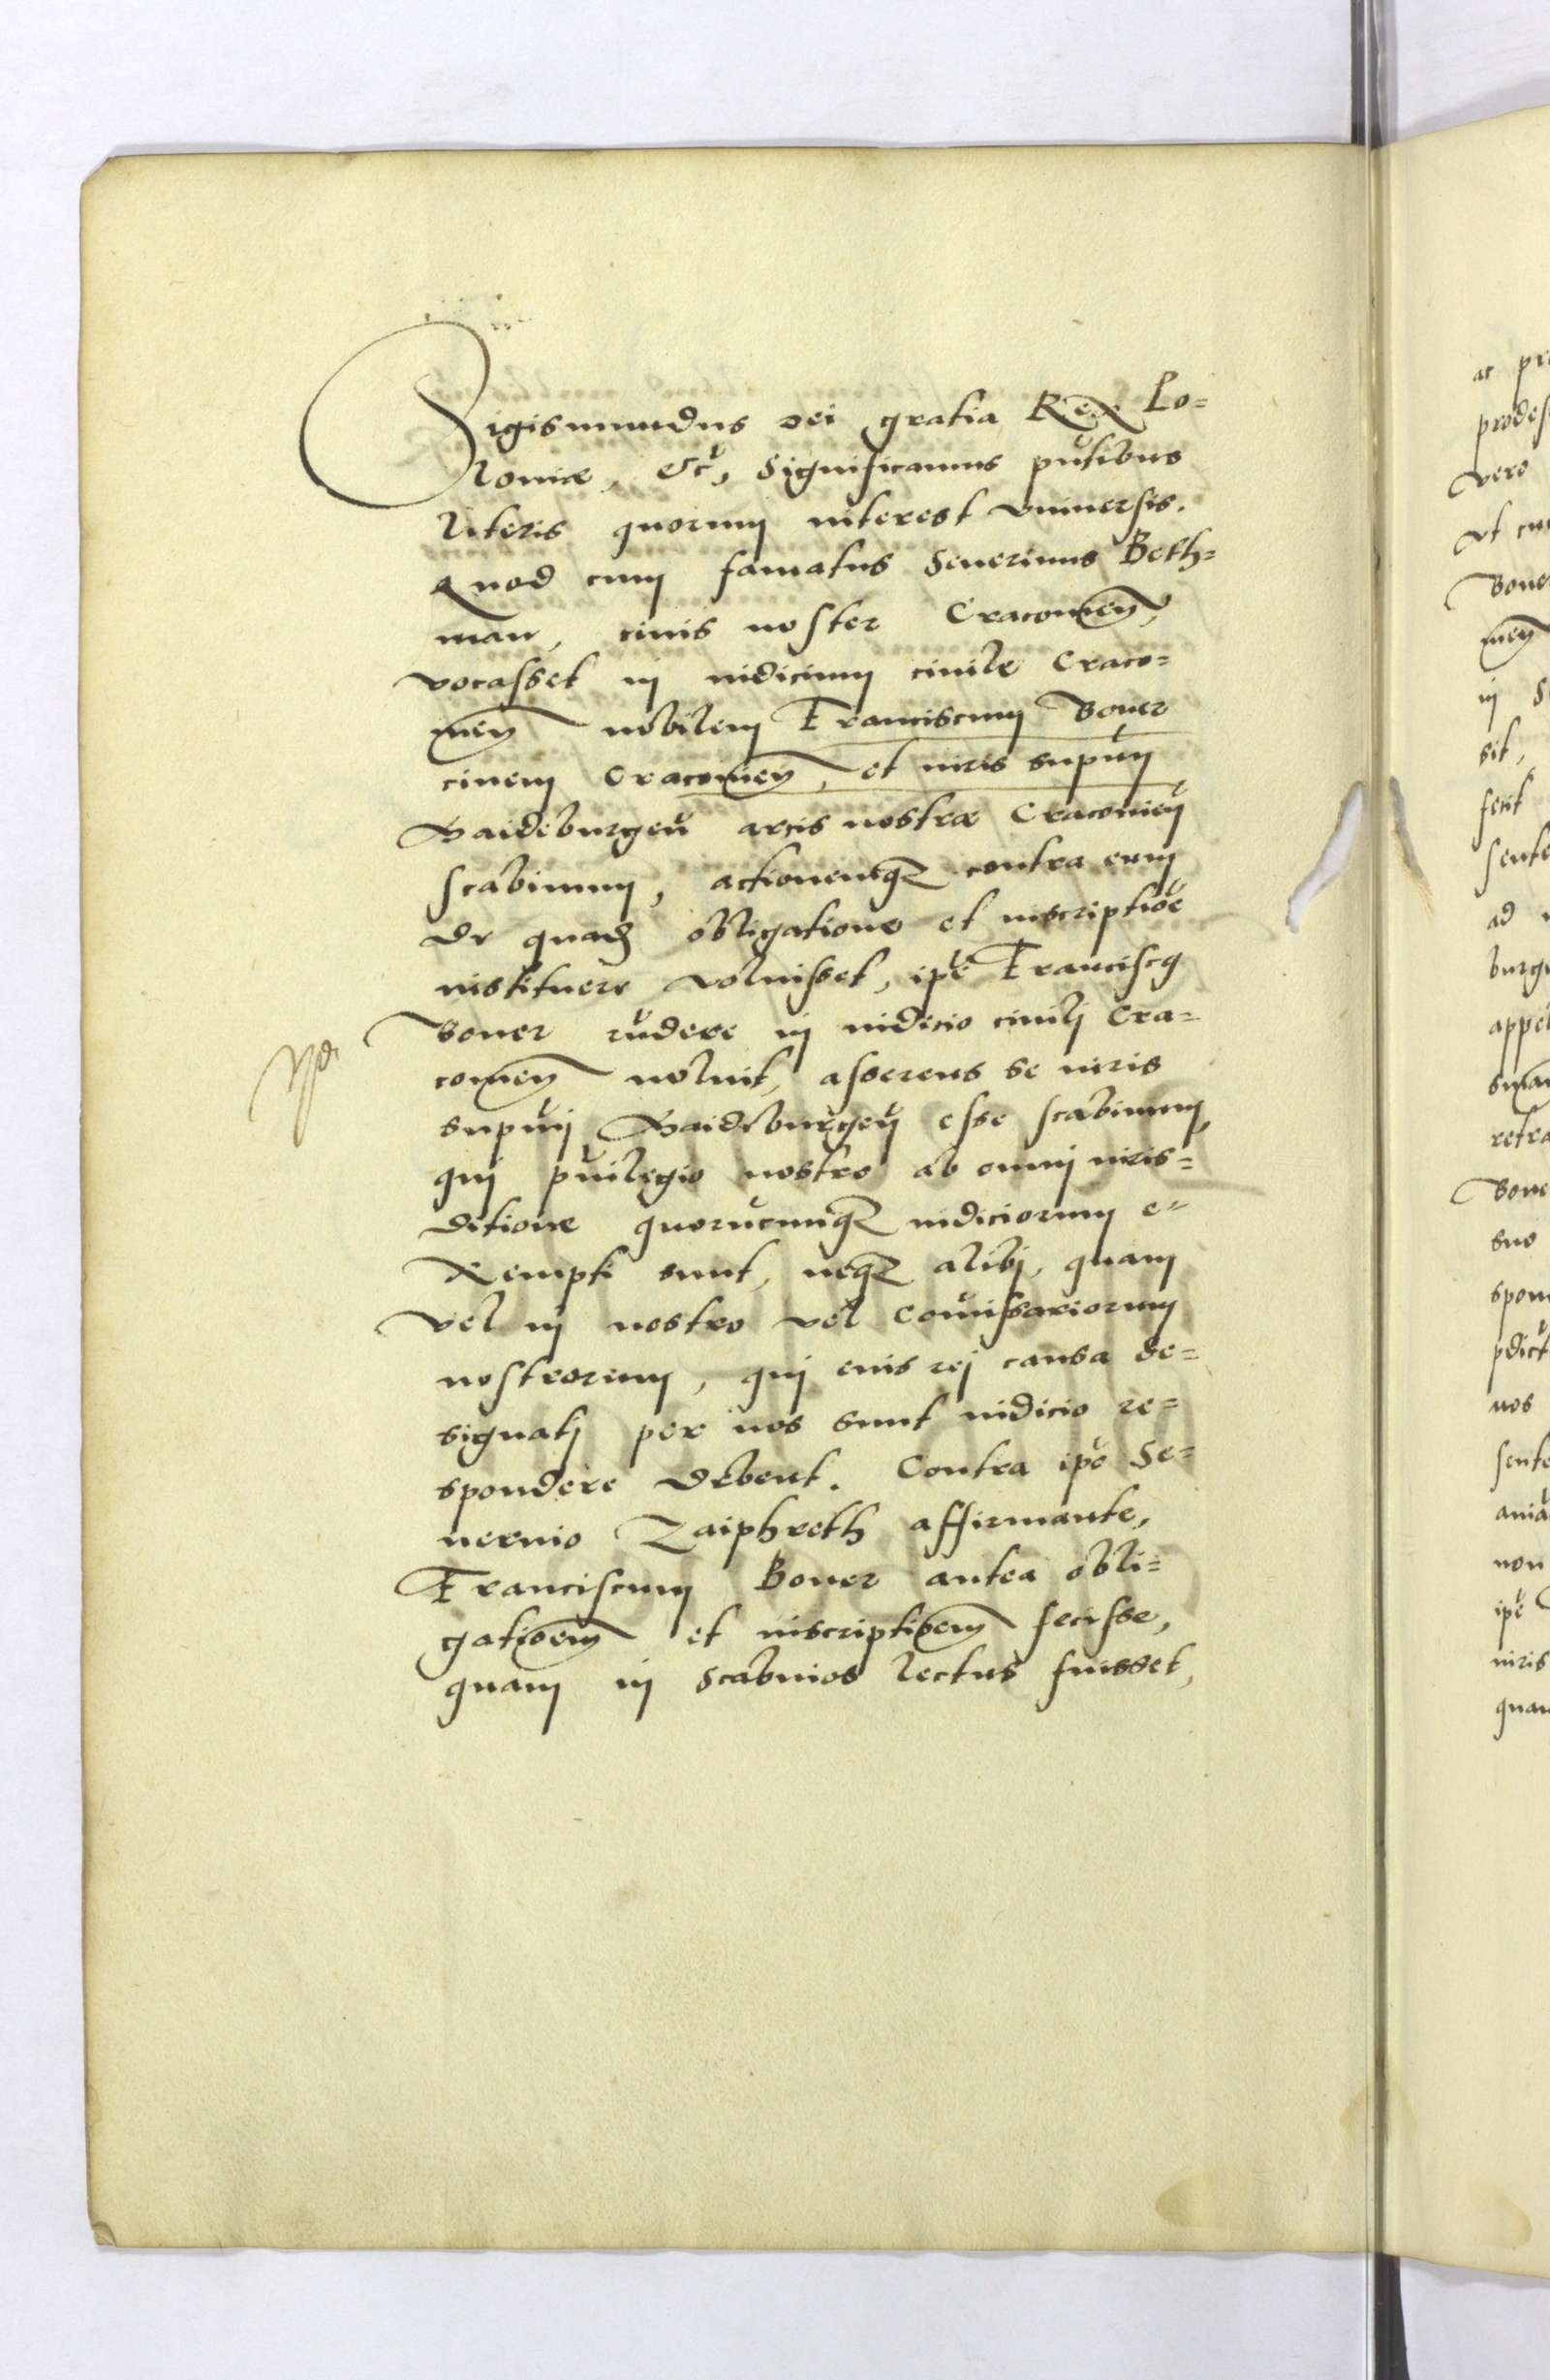 Sigismundus dei gratia Rex Po=
loniæ, &c, Significamus pñtibus
literis quorum interest vniuersis.
Quod cum famatus Seuerinus Beth=
man, ciuis noster Cracouieñ,
vocasset in iudicium ciuile Craco=
uieñ nobilem Franciscum Boner
ciuem Cracouieñ, et iuris supmi
Maideburgeñ arcis nostræ Cracouieñ
scabinum, actionemq; contra eum
de quadã obligatione et inscriptiõe
instituere voluisset, ipe Franciscꝰ
Boner rñdere in iudicio ciuilj Cra=
couieñ noluit, asserens se iuris
supmi Maideburgeñ esse scabinum,
quj puilegio nostro ab omnj iuris=
ditione quorũcumq; iudiciorum e=
xempti sunt, neq; alibj, quam
vel in nostro vel Comissariorum
nostrorum, quj eius rej causa de=
signatj per nos sunt iudicio re=
spondere debent. Contra ipo Se=
uerino Zaiphreth affirmante,
Franciscum Boner antea obli=
gatioem et inscriptioem fecisse,
quam in Scabinos lectus fuisset,
ac pr
prodes
vero
vt cu
Boner
in S
sit,
fecit
sente
ad
burge
appel
retra
Bone
suo
spon
pdict
nos
sente
non
ipe
iuris
quam